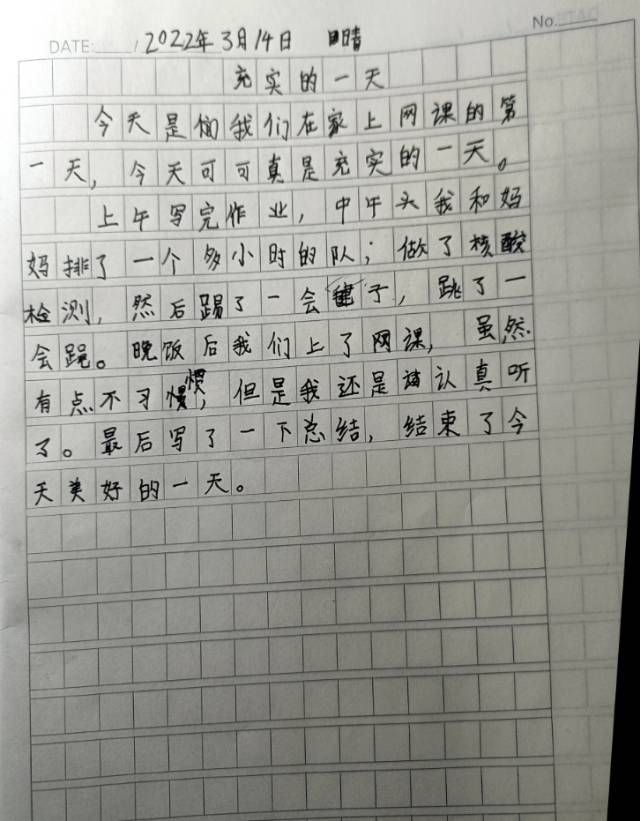 No.
DATE: / 2022年3月14日 晴
充实的一天
今天是我们在家上网课的第
一天，今天可可真是充实的一天。
上午写完作业，中午头我和妈
妈排了一个多小时的队；做了核酸
检测，然后踢了一会毽子，跳了一
会跳。晚饭后我们上了网课，虽然
有点不习惯，但是我还是认真听
了。最后写了一下总结，结束了今
天美好的一天。